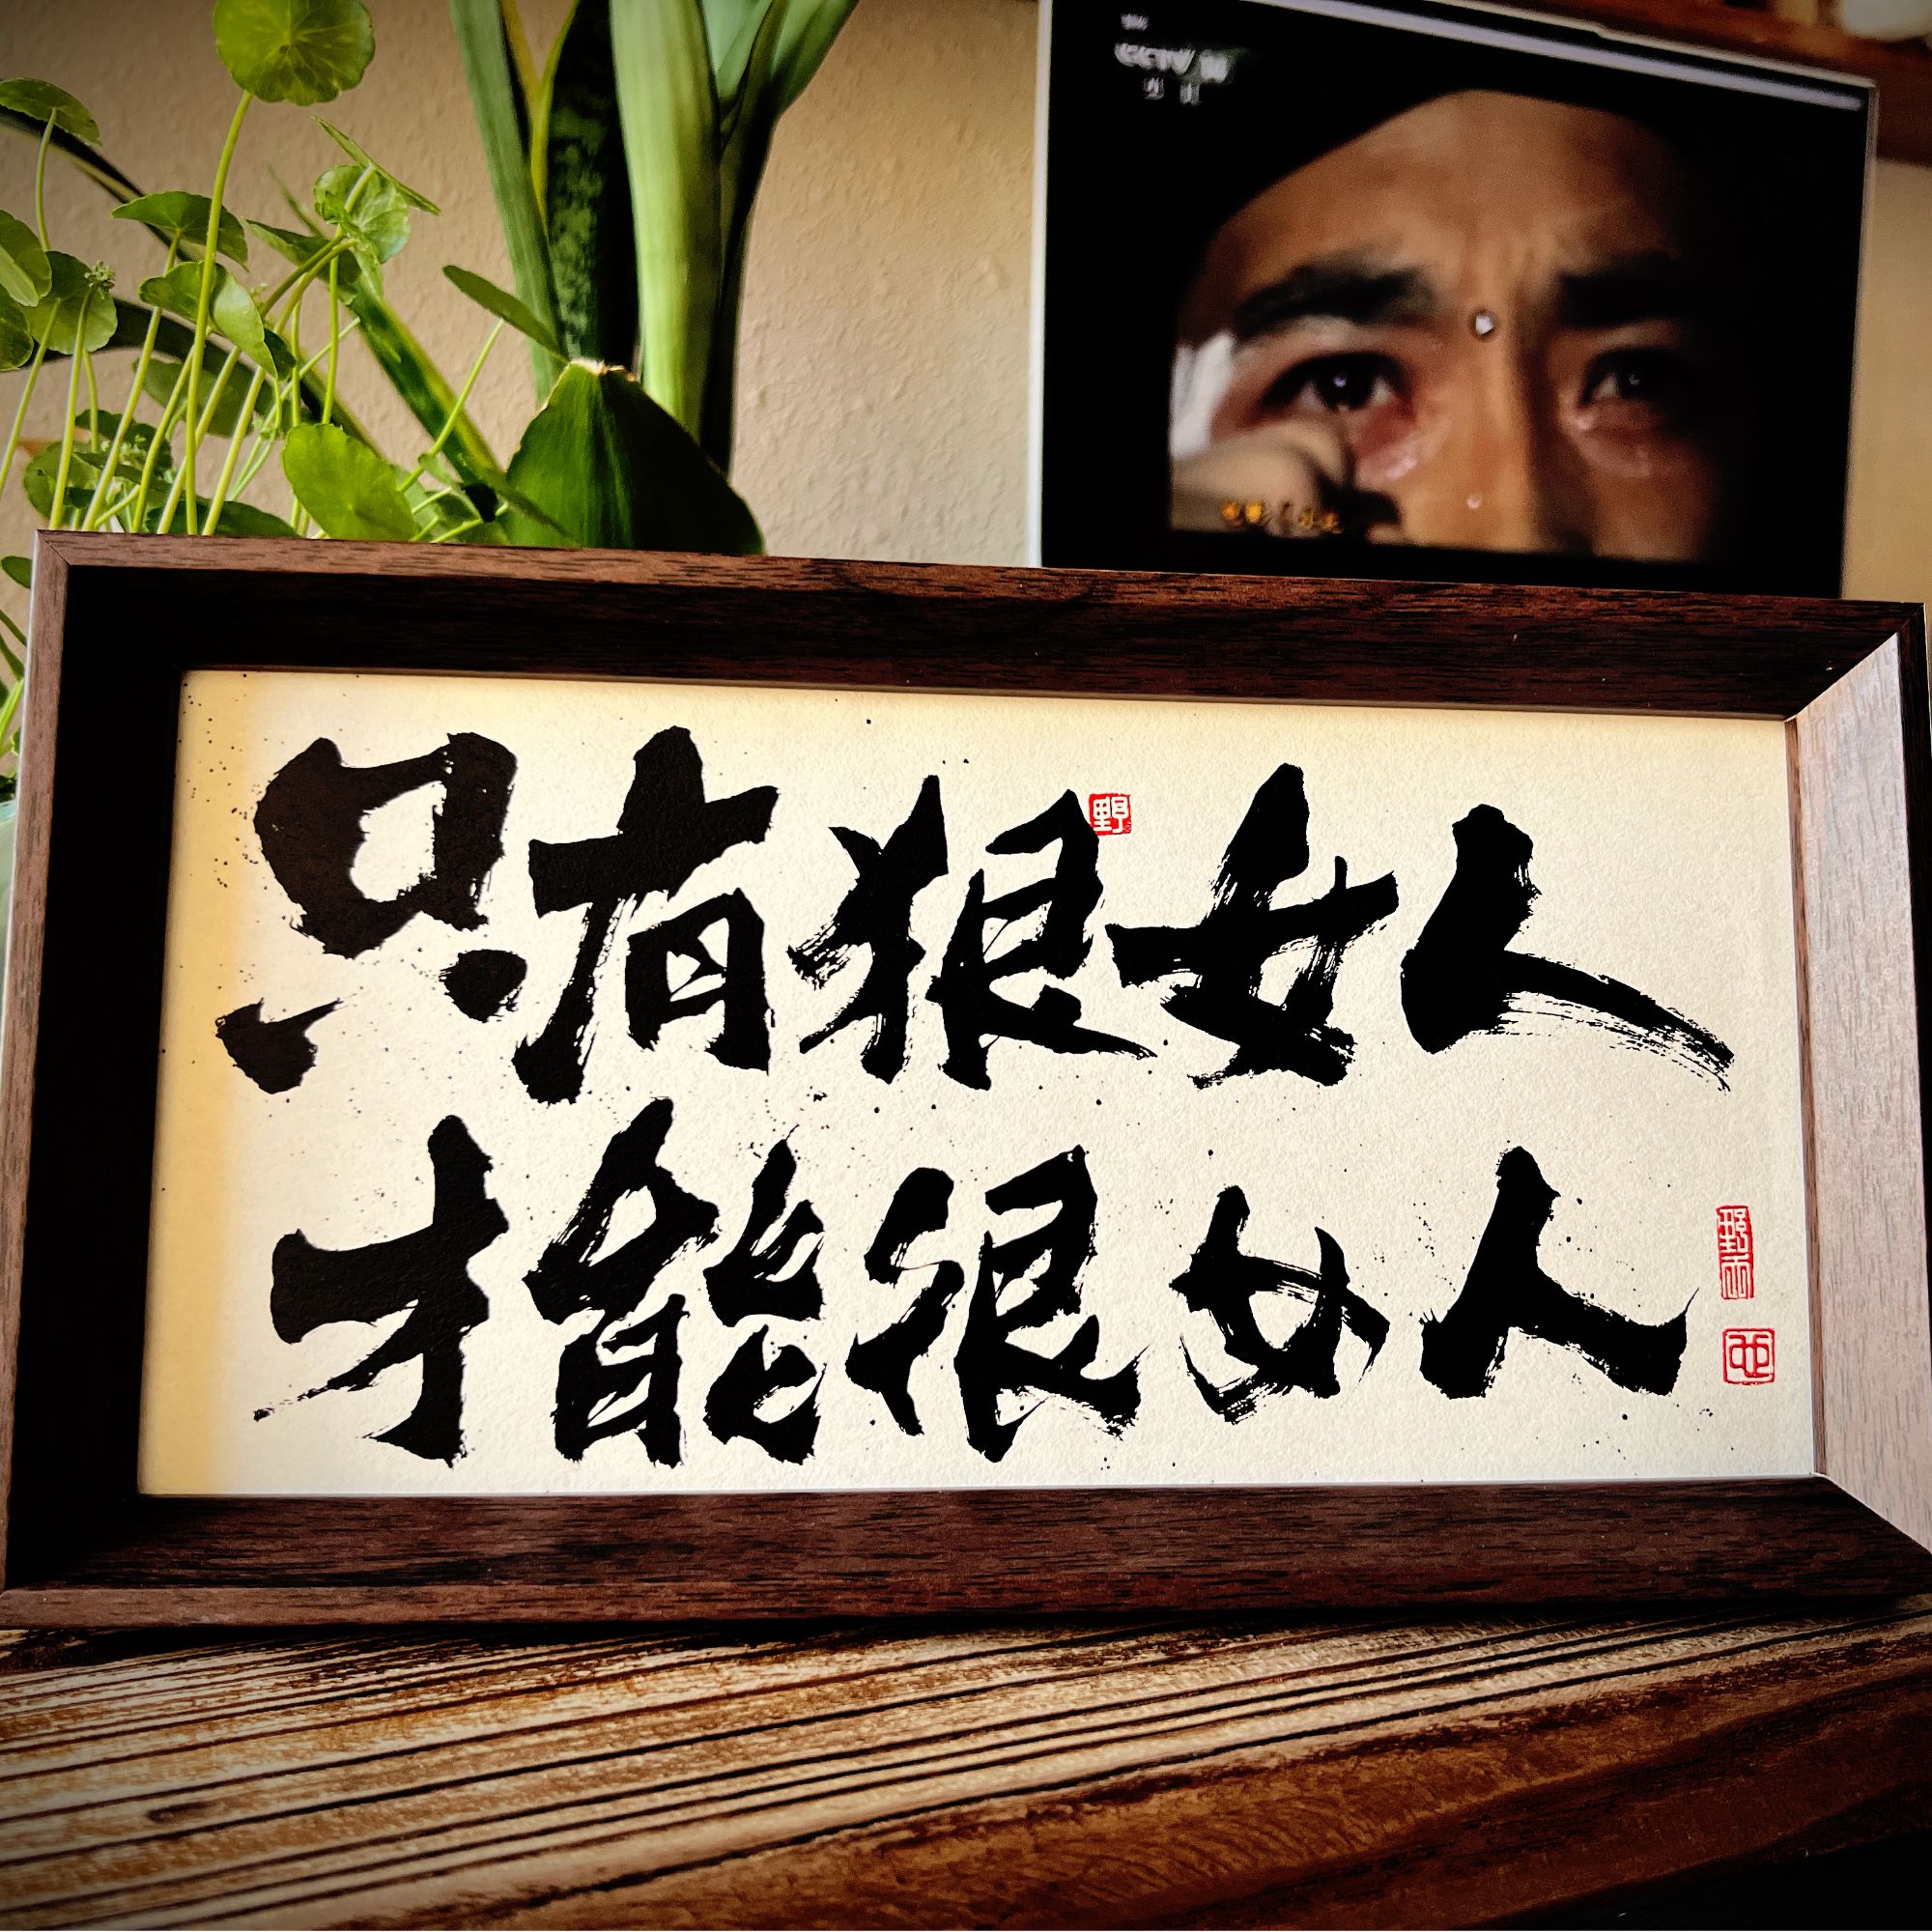 CCTV
只有狠女人
野
才能很女人